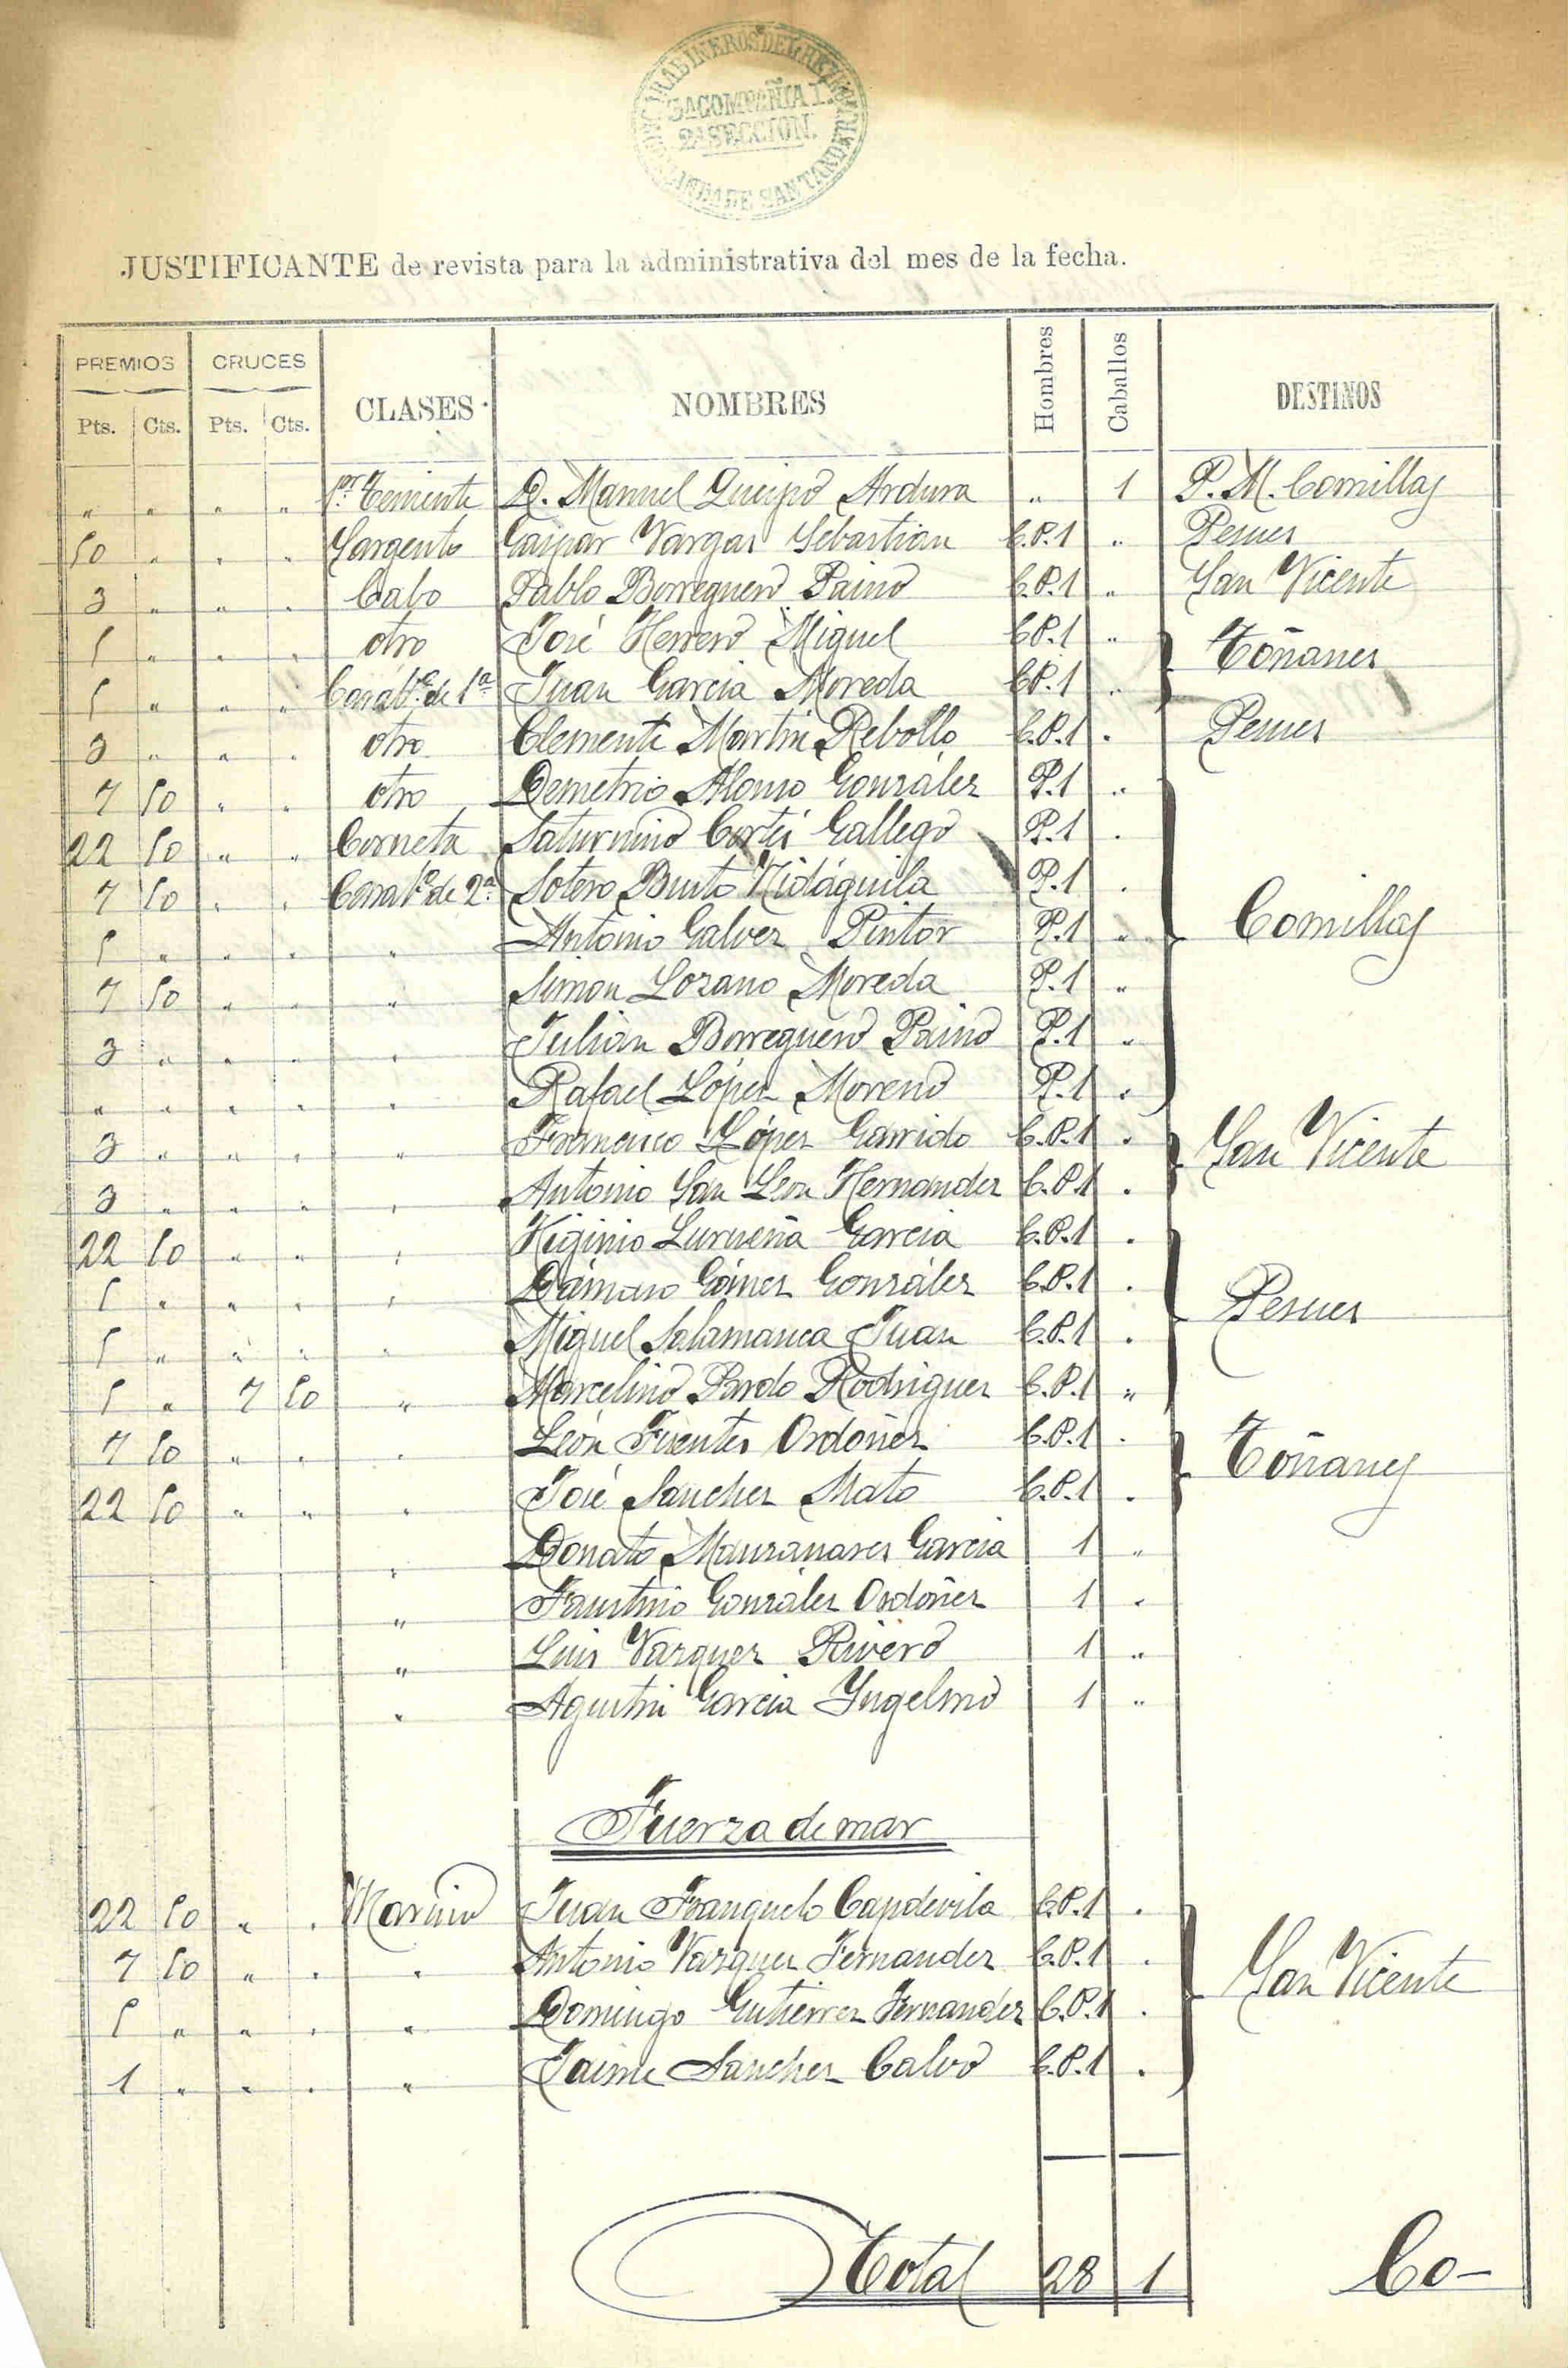 3ª COMPAÑIA
2ª SECCION.
SANTANDER
JUSTIFICANTE de revista para la administrativa del mes de la fecha.
PREMIOS CRUCES CLASES NOMBRES Hombres Caballos DESTINOS
Pts. Cts. Pts. Cts.
" " " " 1er Teniente D. Manuel Queipo Ardura " 1 P. M. Comillas
50 " " " Sargento Gaspar Vargas Sebastian C.P.1 " Pesues
3 " " " Cabo Pablo Borreguero Paino C.P.1 " San Vicente
5 " " " otro José Herrero Miguel C.P.1 " } Toñanes
5 " " " Carabº de 1ª Juan Garcia Moreda C.P.1 "
3 " " " otro Clemente Martin Rebollo C.P.1 " Pesues
7 50 " " otro Demetrio Alonso González P.1 " } Comillas
22 50 " " Corneta Saturnino Cortés Gallego P.1 "
7 50 " " Carabº de 2ª Sotero Busto Nidáguila P.1 "
5 " " " " Antonio Galvez Pintor P.1 "
7 50 " " " Simon Lozano Moreda P.1 "
3 " " " " Julián Borreguero Paino P.1 "
" " " " " Rafael López Moreno P.1 "
3 " " " " Francisco López Garrido C.P.1 " } San Vicente
3 " " " " Antonio San Leon Hernandez C.P.1 "
22 50 " " " Higinio Lurueña Garcia C.P.1 " } Pesues
5 " " " " Dámaso Gómez González C.P.1 "
5 " " " " Miguel Salamanca Juan C.P.1 "
5 " 7 50 " Marcelino Pardo Rodriguez C.P.1 "
7 50 " " " León Fuentes Ordoñez C.P.1 " } Toñanes
22 50 " " " José Sanchez Mato C.P.1 "
" Donato Manzanares Garcia 1 "
" Faustino González Ordoñez 1 "
" Luis Vazquez Rivero 1 "
" Agustin Garcia Yngelmo 1 "
Fuerza de mar
22 50 " " Marino Juan Franquelo Capdevila C.P.1 " } San Vicente
7 50 " " " Antonio Vazquez Fernandez C.P.1 "
5 " " " " Domingo Gutierrez Fernandez C.P.1 "
1 " " " " Jaime Sanchez Calvo C.P.1 "
Total 28 1 Co-